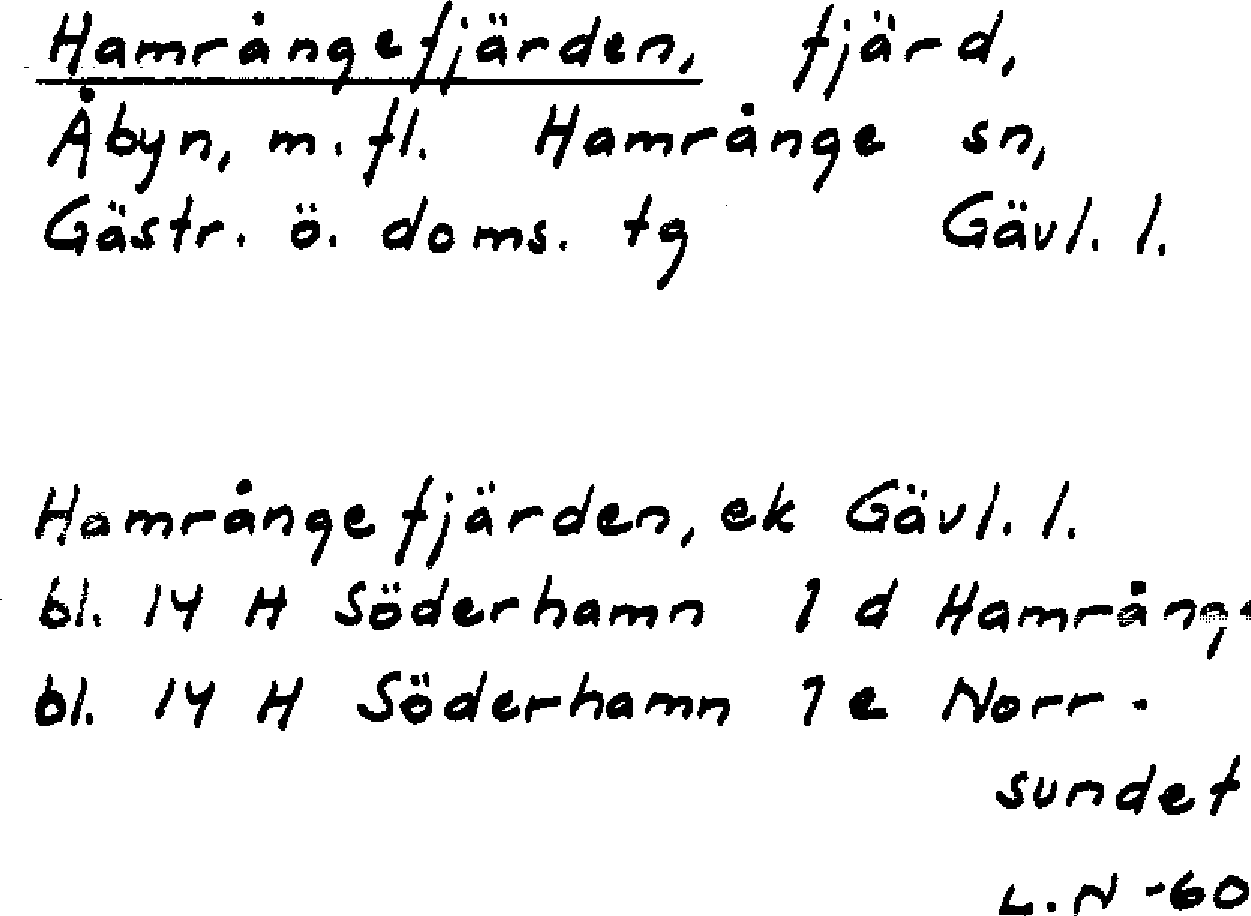 Hamrångefjärden, fjärd,
Åbyn, m. fl. Hamrånge sn,
Gästr. ö. doms. tg Gävl. l.
Hamrångefjärden, ek Gävl. l.
bl. 14 H Söderhamn 1 d Hamrånge
bl. 14 H Söderhamn 1 e Norr-
sundet
L.N -60